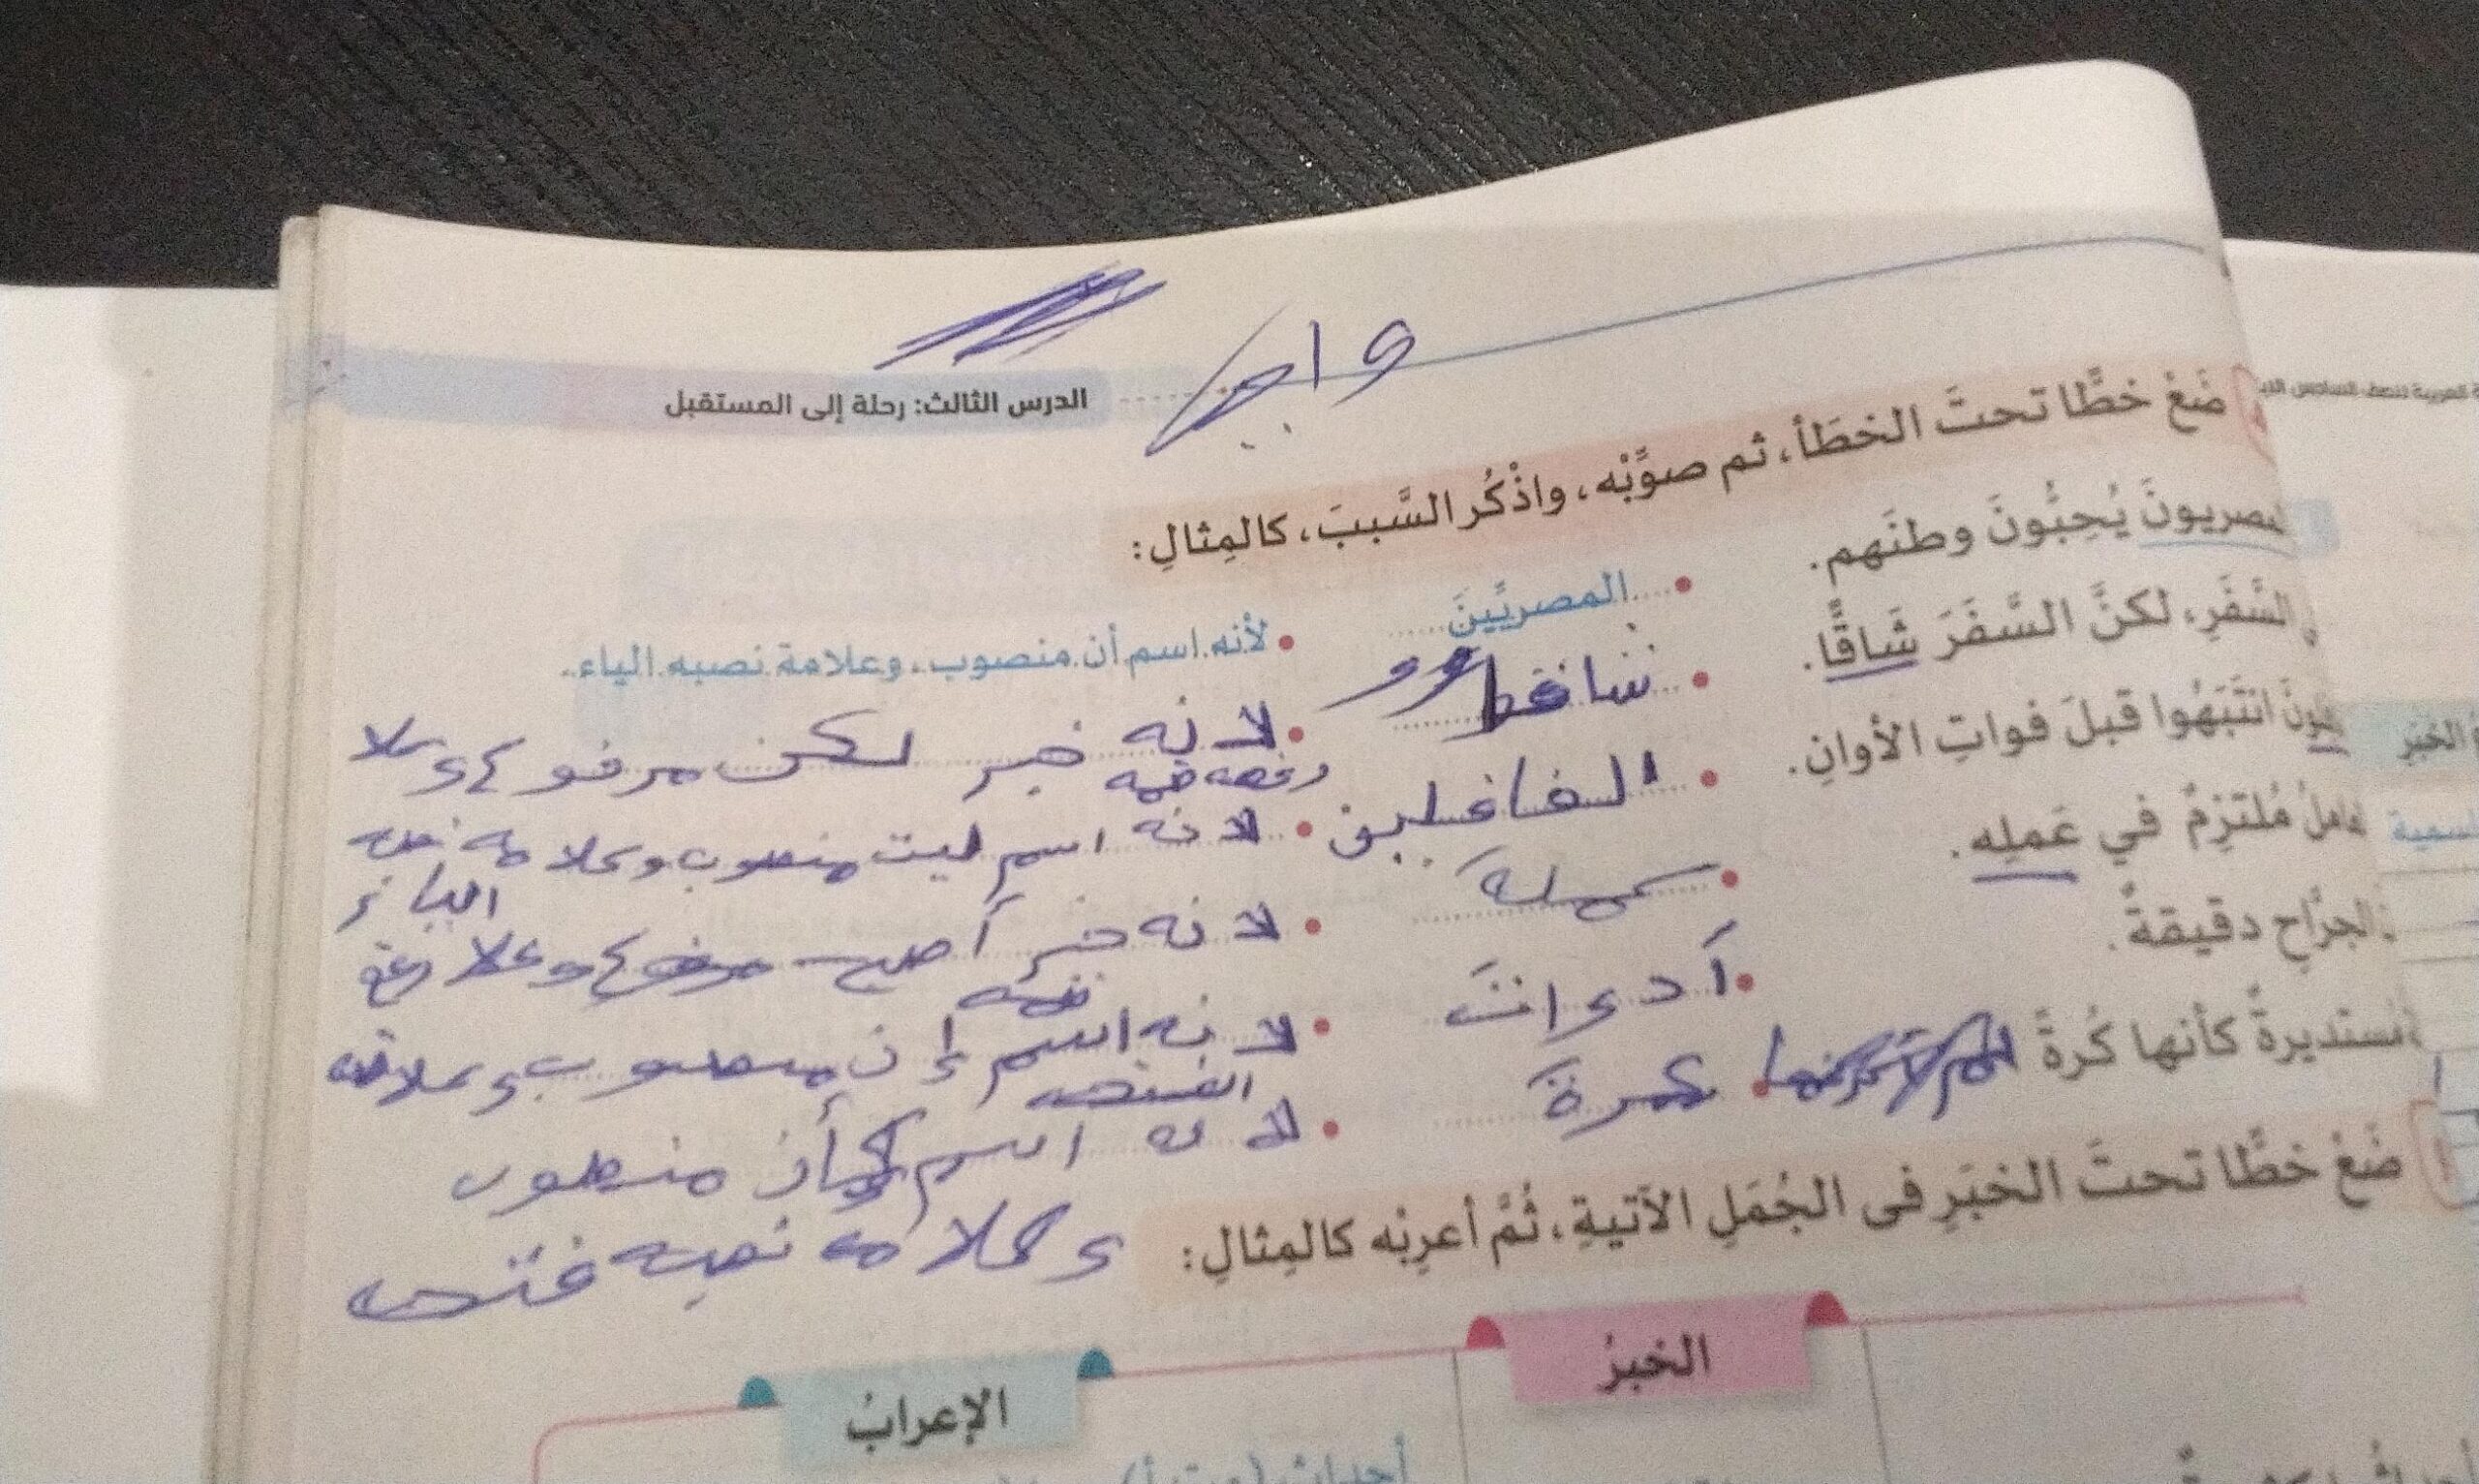 واجب
الدرس الثالث: رحلة إلى المستقبل
ضَعْ خطًّا تحتَ الخطَأ، ثم صوِّبْه، واذْكُر السَّببَ، كالمِثالِ:
يُحِبُّونَ وطنَهم.
المصريِّينَ
لأنه اسم أن منصوب، وعلامة نصبه الياء.
السَّفَرِ، لكنَّ السَّفَرَ شَاقًّا.
لانه خبر لكن مرفوع وعلا
رفعه ضمه
انْتَبَهُوا قبلَ فواتِ الأوانِ.
الغافلين
لانه اسم ليت منصوب وعلامه نصبه
الياء
مُلتزِمٌ في عَملِه.
عمله
لانه خبر أصبح مرفوع وعلا رفع
ضمه
الجرَّاحِ دقيقةٌ.
أدوات
لانه اسم إن منصوب وعلامه
الفتحه
مستديرةٌ كأنها كُرةً
كرة
لانه اسم كأن منصوب
وعلامه نصبه فتحه
ضَعْ خطًّا تحتَ الخبَرِ فى الجُمَلِ الآتيةِ، ثُمَّ أعربْه كالمِثالِ:
الخبرُ
الإعرابُ